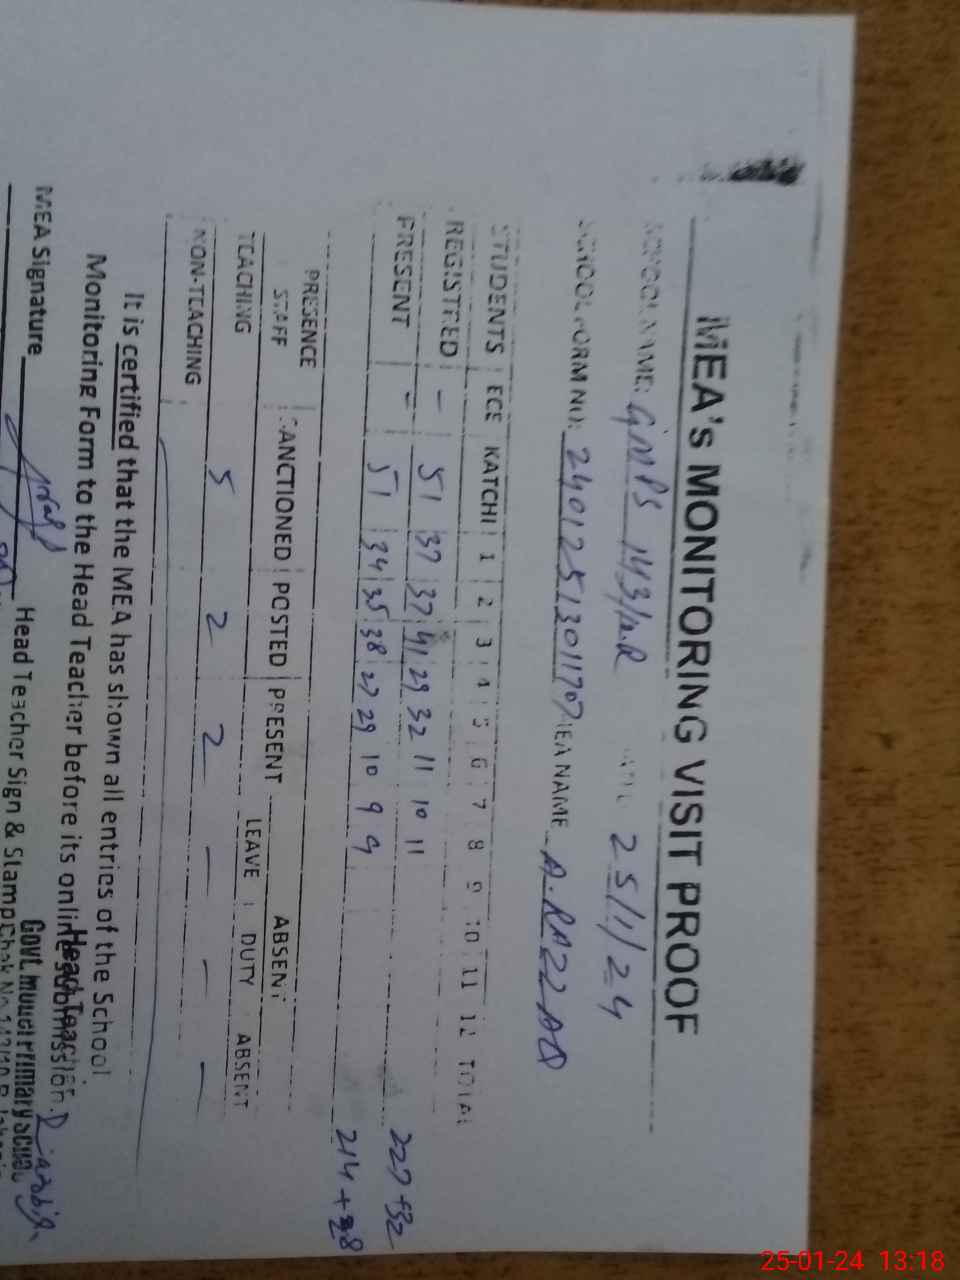 MEA's MONITORING VISIT PROOF
SCHOOL NAME: GMPS 143/10.R DATE 25/1/24
SCHOOL FORM NO: 2401251301170 MEA NAME A.RAZZAQ
STUDENTS ECE KATCHI 1 2 3 4 5 6 7 8 9 10 11 12 TOTAL
REGISTRED - 51 37 37 41 29 32 11 10 11 227+32
PRESENT - 51 34 35 38 27 29 10 9 9 214+28
PRESENCE ABSENT
STAFF SANCTIONED POSTED PRESENT LEAVE DUTY ABSENT
TEACHING 5 2 2 - - -
NON-TEACHING
It is certified that the MEA has shown all entries of the School
Monitoring Form to the Head Teacher before its online submission.
MEA Signature Head Teacher Sign & Stamp
Head Teacher
Govt. Model Primary School
Chak No.143/10.R
25-01-24 13:18